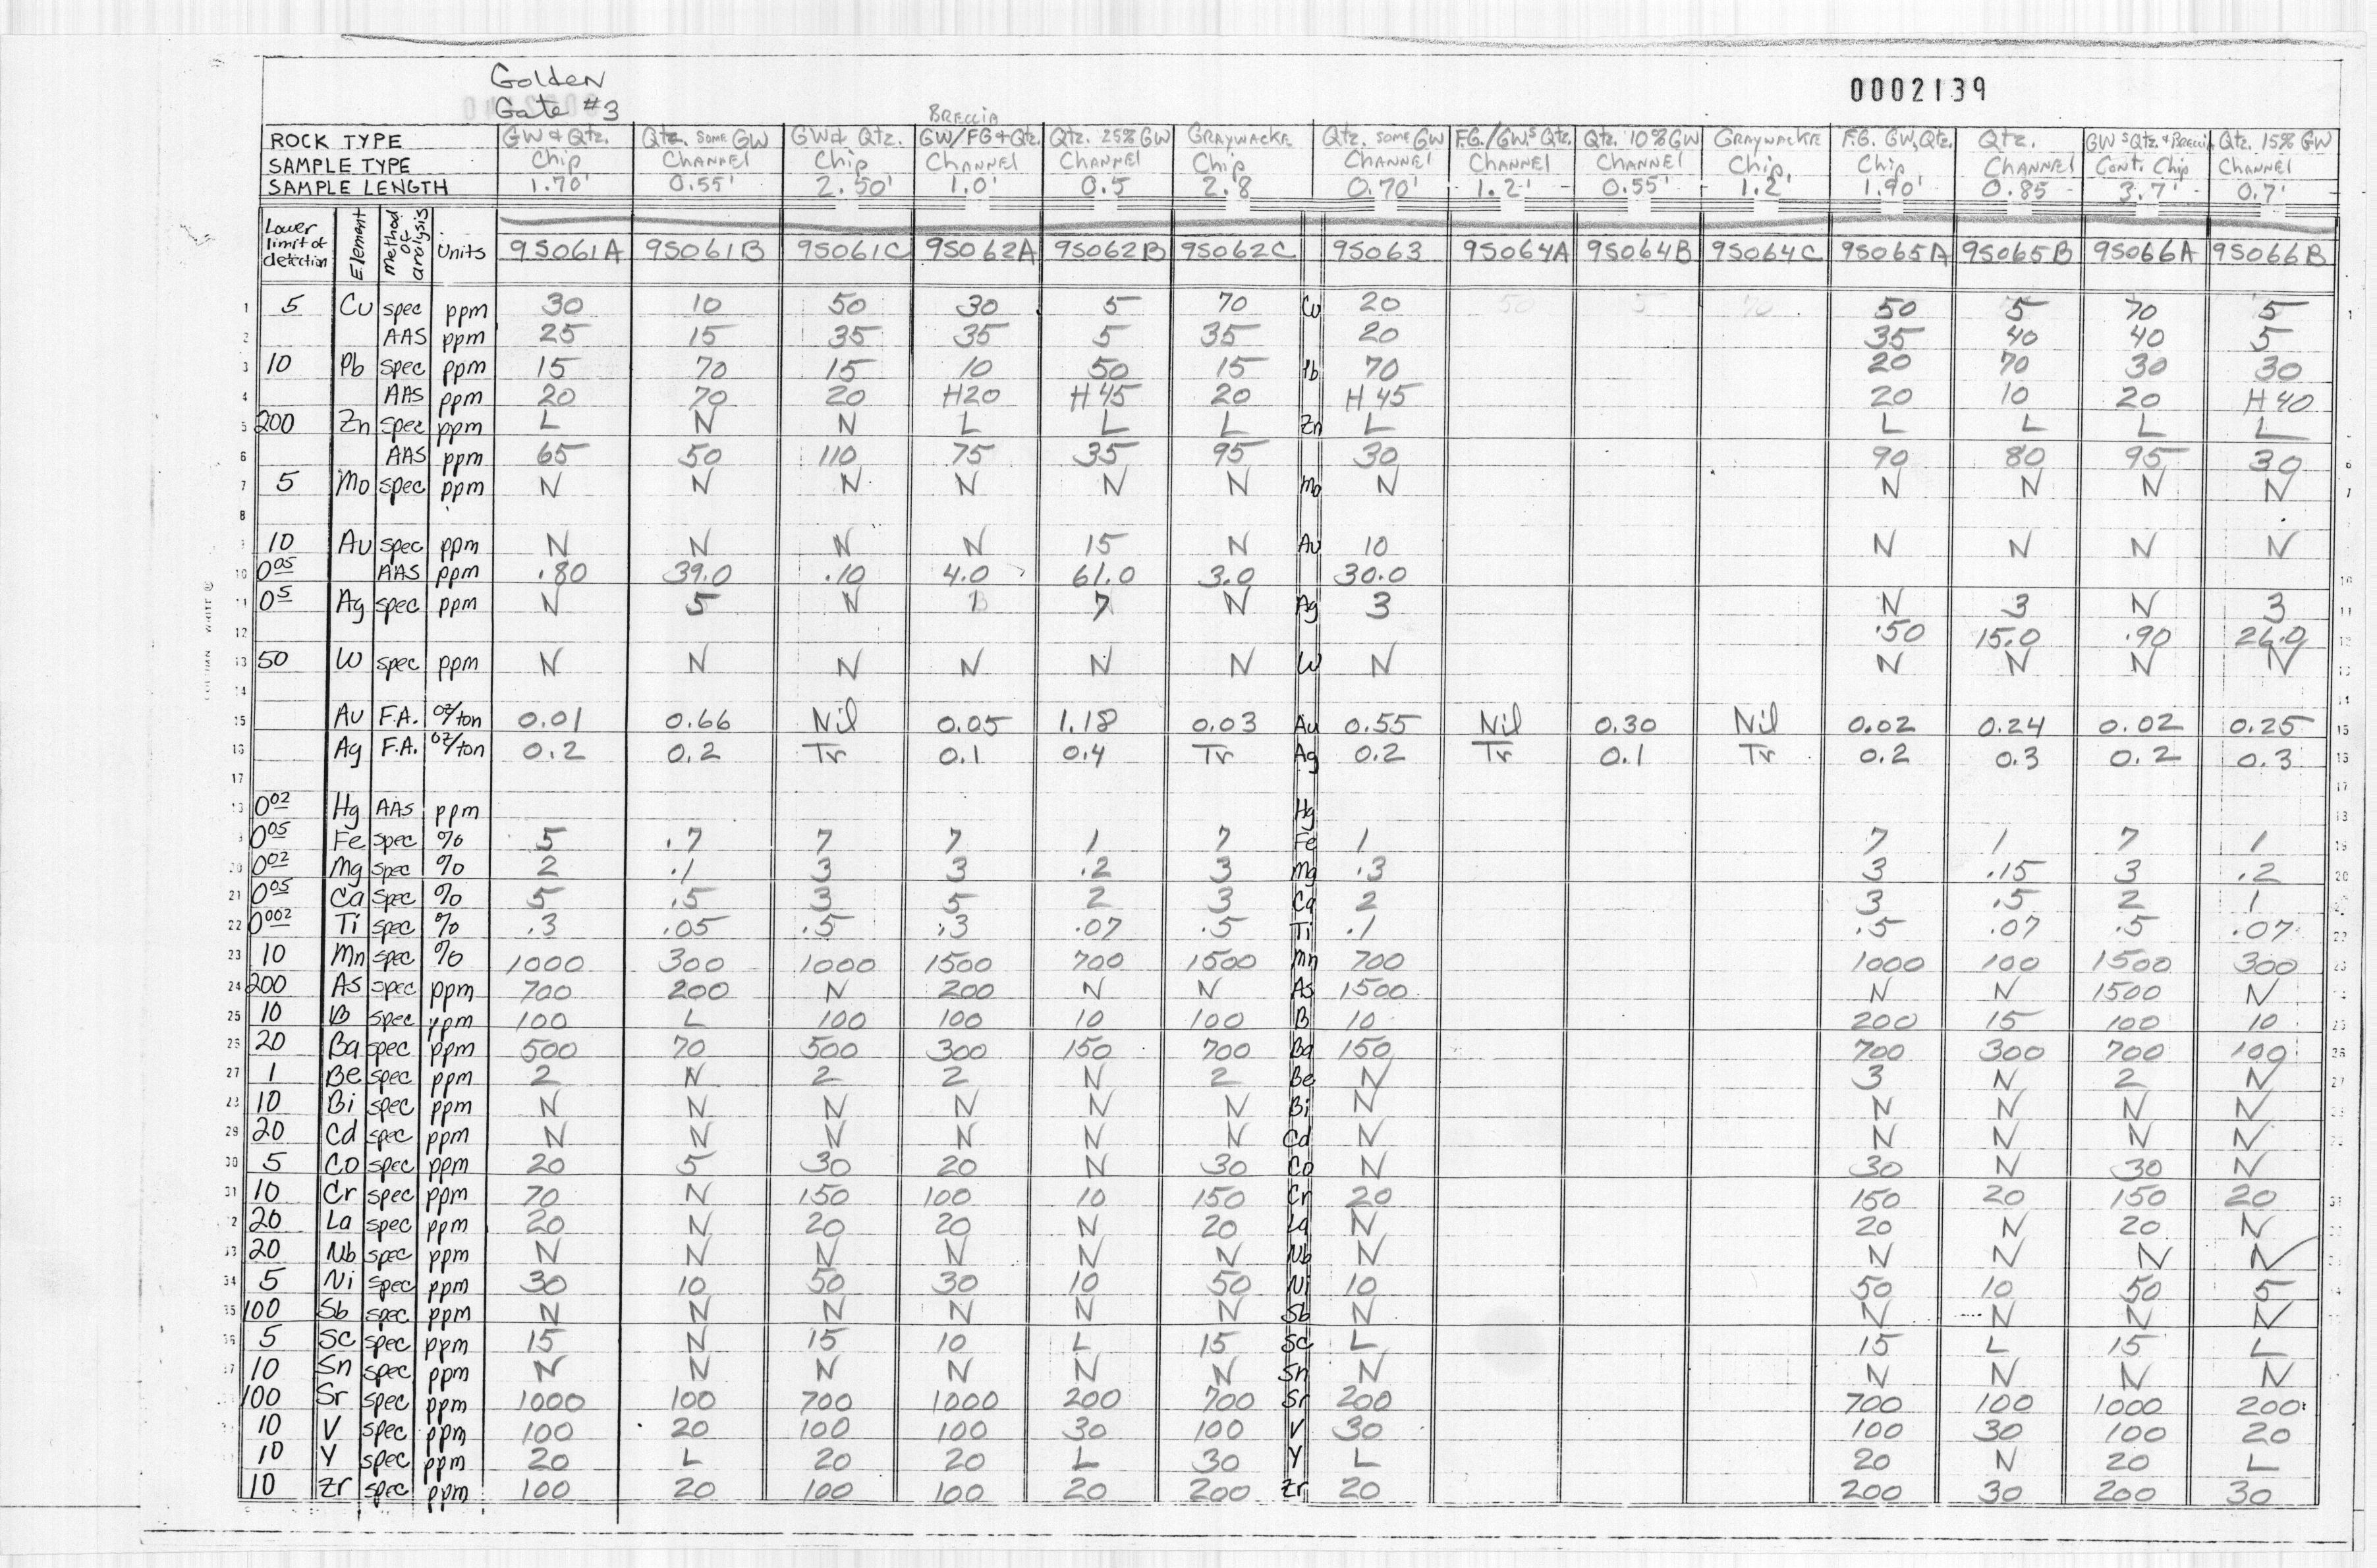 Golden
Gate #3
0002139
BRECCIA
ROCK TYPE GW & Qtz. Qtz. SOME GW GW & Qtz. GW/FG & Qtz. Qtz. 25% GW GRAYWACKE Qtz. SOME GW F.G./GWS Qtz. Qtz. 10% GW GRAYWACKE F.G. GW, Qtz. Qtz. GWS Qtz. & Breccia Qtz. 15% GW
SAMPLE TYPE Chip CHANNEL Chip CHANNEL CHANNEL Chip CHANNEL CHANNEL CHANNEL Chip. Chip CHANNEL Cont. Chip CHANNEL
SAMPLE LENGTH 1.70' 0.55' 2.50' 1.0' 0.5 2.8 0.70' 1.2' 0.55' 1.2' 1.90' 0.85 3.7' 0.7'
Lower limit of detection Element Method of analysis Units 9S061A 9S061B 9S061C 9S062A 9S062B 9S062C 9S063 9S064A 9S064B 9S064C 9S065A 9S065B 9S066A 9S066B
1 5 Cu spec ppm 30 10 50 30 5 70 Cu 20 50 5 70 50 5 70 5 1
2 AAS ppm 25 15 35 35 5 35 20 35 40 40 5
3 10 Pb spec ppm 15 70 15 10 50 15 Pb 70 20 70 30 30
4 AAS ppm 20 70 20 H20 H45 20 H45 20 10 20 H40
5 200 Zn spec ppm L N N L L L Zn L L L L L
6 AAS ppm 65 50 110 75 35 95 30 90 80 95 30 6
7 5 Mo spec ppm N N N N N N Mo N N N N N 7
8
10 Au spec ppm N N N N 15 N Au 10 N N N N
10 0.05 AAS ppm .80 39.0 .10 4.0 61.0 3.0 30.0 10
11 0.5 Ag spec ppm N 5 N 7 N Ag 3 N 3 N 3 11
12 .50 15.0 .90 26.0 12
13 50 W spec ppm N N N N N N W N N N N N
14 14
15 Au F.A. oz/ton 0.01 0.66 Nil 0.05 1.18 0.03 Au 0.55 Nil 0.30 Nil 0.02 0.24 0.02 0.25 15
16 Ag F.A. oz/ton 0.2 0.2 Tr 0.1 0.4 Tr Ag 0.2 Tr 0.1 Tr 0.2 0.3 0.2 0.3 16
17 17
18 0.02 Hg AAS ppm Hg 18
0.05 Fe spec % 5 .7 7 7 1 7 Fe 1 7 1 7 1 19
20 0.02 Mg spec % 2 .1 3 3 .2 3 Mg .3 3 .15 3 .2 20
21 0.05 Ca spec % 5 .5 3 5 2 3 Ca 2 3 .5 2 1
22 0.002 Ti spec % .3 .05 .5 .3 .07 .5 Ti .1 .5 .07 .5 .07 22
23 10 Mn spec % 1000 300 1000 1500 700 1500 Mn 700 1000 100 1500 300 23
24 200 As spec ppm 700 200 N 200 N N As 1500 N N 1500 N
25 10 B spec ppm 100 L 100 100 10 100 B 10 200 15 100 10 25
26 20 Ba spec ppm 500 70 500 300 150 700 Ba 150 700 300 700 100 26
27 1 Be spec ppm 2 N 2 2 N 2 Be N 3 N 2 N 27
28 10 Bi spec ppm N N N N N N Bi N N N N N
29 20 Cd spec ppm N N N N N N Cd N N N N N
30 5 Co spec ppm 20 5 30 20 N 30 Co N 30 N 30 N
31 10 Cr spec ppm 70 N 150 100 10 150 Cr 20 150 20 150 20
20 La spec ppm 20 N 20 20 N 20 La N 20 N 20 N
33 20 Nb spec ppm N N N N N N Nb N N N N N
34 5 Ni spec ppm 30 10 50 30 10 50 Ni 10 50 10 50 5
35 100 Sb spec ppm N N N N N N Sb N N N N N
36 5 Sc spec ppm 15 N 15 10 L 15 Sc L 15 L 15 L
37 10 Sn spec ppm N N N N N N Sn N N N N N
100 Sr spec ppm 1000 100 700 1000 200 700 Sr 200 700 100 1000 200
10 V spec ppm 100 20 100 100 30 100 V 30 100 30 100 20
10 Y spec ppm 20 L 20 20 L 30 Y L 20 N 20 L
10 Zr spec ppm 100 20 100 100 20 200 Zr 20 200 30 200 30